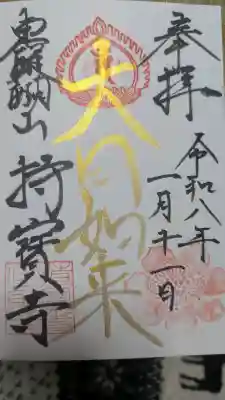 奉拝
令和八年
一月十一日
大日如来
醍醐山 持寳寺